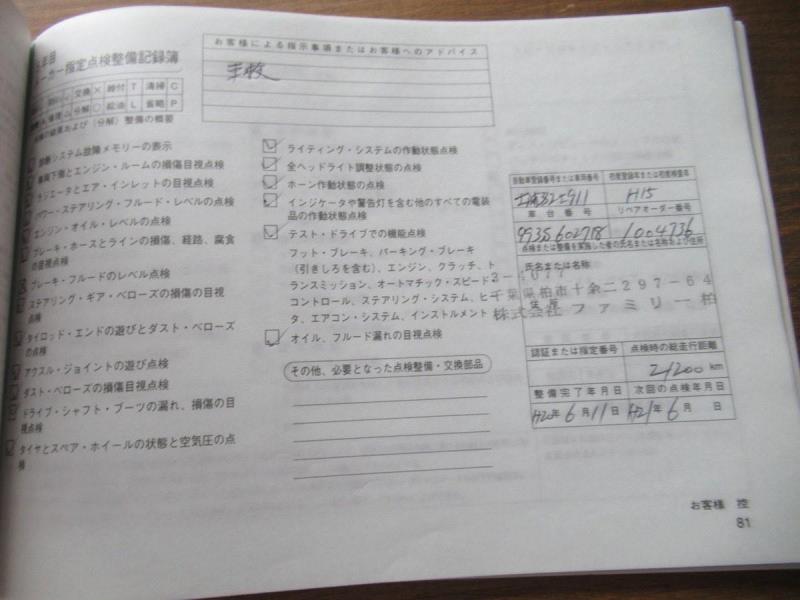 年目
ーカー指定点検整備記録簿
交換 × 締付 T 清掃 C
分解 ○ 給油 L 省略 P
の結果および（分解）整備の概要
お客様による指示事項またはお客様へのアドバイス
車検
診断システム故障メモリーの表示
車両下側とエンジン・ルームの損傷目視点検
ラジエータとエア・インレットの目視点検
パワー・ステアリング・フルード・レベルの点検
エンジン・オイル・レベルの点検
ブレーキ・ホースとラインの損傷、経路、腐食
の目視点検
ブレーキ・フルードのレベル点検
ステアリング・ギア・ベローズの損傷の目視
点検
タイロッド・エンドの遊びとダスト・ベローズ
の点検
アクスル・ジョイントの遊び点検
ダスト・ベローズの損傷目視点検
ドライブ・シャフト・ブーツの漏れ、損傷の目
視点検
タイヤとスペア・ホイールの状態と空気圧の点
検
ライティング・システムの作動状態点検
全ヘッドライト調整状態の点検
ホーン作動状態の点検
インジケータや警告灯を含む他のすべての電装
品の作動状態点検
テスト・ドライブでの機能点検
フット・ブレーキ、パーキング・ブレーキ
（引きしろを含む）、エンジン、クラッチ、ト
ランスミッション、オートマチック・スピード
コントロール、ステアリング・システム、ヒー
タ、エアコン・システム、インストルメント
オイル、フルード漏れの目視点検
その他、必要となった点検整備・交換部品
自動車登録番号または車両番号 初度登録年または初度検査年
H15
車台番号 リペアオーダー番号
1004736
点検または整備を実施した者の氏名または名称および住所
氏名または名称
千葉県柏市十余二297-64
住所
株式会社ファミリー柏
認証または指定番号 点検時の総走行距離
21200 km
整備完了年月日 次回の点検年月日
H20年6月11日 H21年6月 日
お客様 控
81